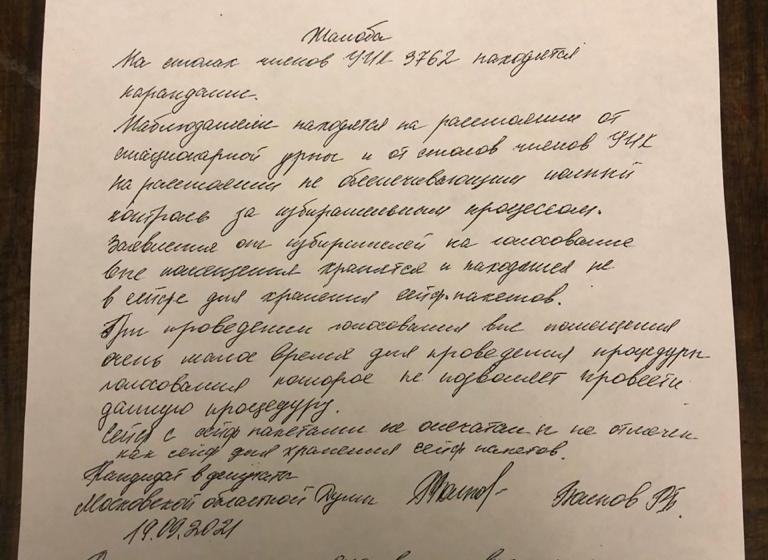 Жалоба
На столах членов УИК 3762 находятся
карандаши.
Наблюдатели находятся на расстоянии от
стационарной урны и от столов членов УИК
на расстоянии не обеспечивающим полный
контроль за избирательным процессом.
Заявления от избирателей на голосование
вне помещения хранятся и находятся не
в сейфе для хранения сейф-пакетов.
При проведении голосования вне помещения
очень малое время для проведения процедуры
голосования которое не позволяет провести
данную процедуру.
Сейф с сейф пакетами не опечатан и не отмечен
как сейф для хранения сейф пакетов.
Кандидат в депутаты
Московской областной Думы
19.09.2021